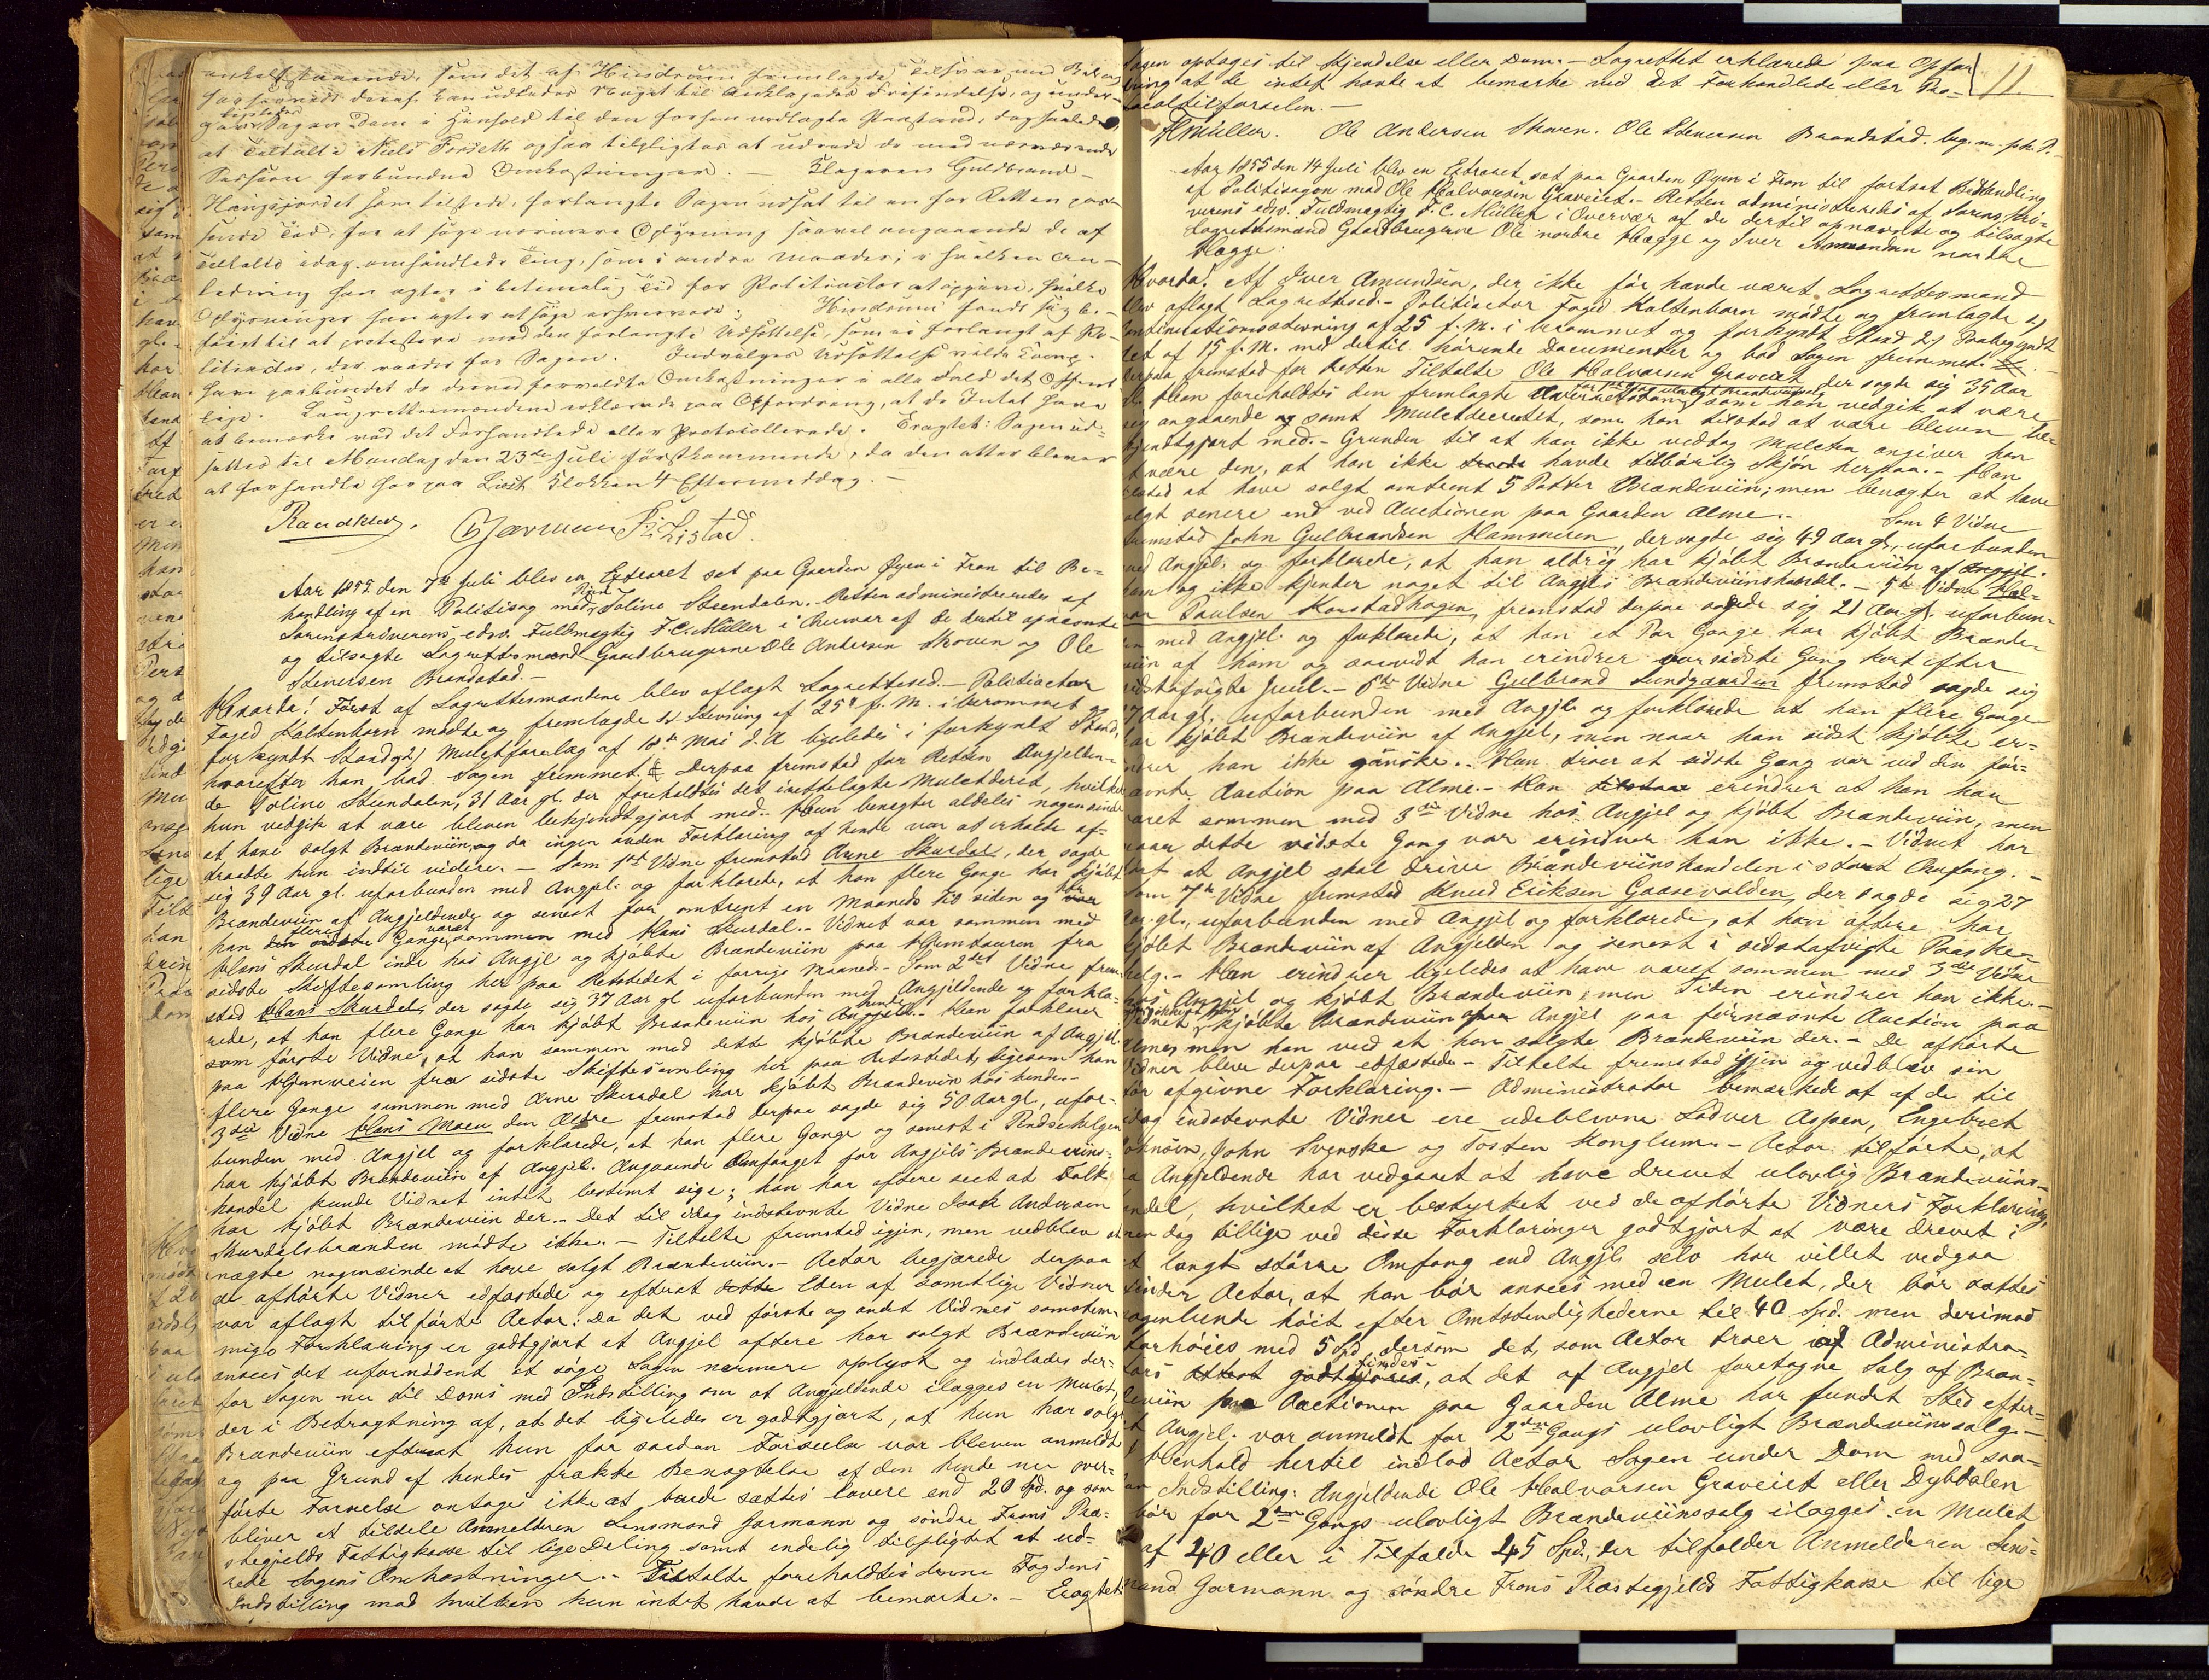 enkeltstaaende, som det af Hundorm fremlagte Tilsvar med Bilag
at Tiltalte Niels Forseth ogsaa tilpligtes at udrede de med nærværende
Session forbundne Omkostninger. — Klageren Guldbrand
Haugsjordet som tilstede, forlangte Sagen udsat til en for Retten pas-
sende Tid, for at søge nærmere Oplysning saavel angaaende de af
Tiltalte idag omhandlede Ting, som i andre Maader, i hvilken An-
ledning han agter i betimelig Tid for Politiactor at opgive, hvilke
Oplysninger han agter at søge erhvervede;
føiet til at protestere mod den forlangte Udsættelse, som ei forlangt af Po-
litiactor, der raader for Sagen. Indvilges Udsættelse vilde Tiltalte
have paabundet de derved forvoldte Omkostninger i alle Fald det Offent-
lige. Laugrettesmændene erklærede paa Opfordring, at de Intet have
at bemærke ved det Forhandlede eller Protocollerede. Eragtet: Sagen ud-
sættes til Mandag den 23de Juli førstkommende, da den atter bliver
at forhandle her paa Lie Klokken 4 Eftermiddag. —
Randklev. Gjarmun Listad.
Aar 1855 den 7de Juli blev en Extraret sat paa Gaarden Øyen i Fron til Be-
handling af en Politisag mod Pige Toline Steendalen. Retten administreredes af
Sorenskriverens edsv. Fuldmægtig F. C. Müller i Overvær af de dertil opnævnte
og tilsagte Lagrettesmænd Gaardbrugerne Ole Andersen Skoven og Ole
Stenersen Brandstad. —
Hvorda! Først af Lagrettesmændene blev aflagt Lagrettesed. — Politiactor
Foged Kaltenborn mødte og fremlagde 1) Stevning af 25de f. M. i berammet og
forkyndt Stand 2) Mulctforelæg af 18de Mai d. A. ligeledes i forkyndt Stand,
hvorefter han bad Sagen fremmet. Derpaa fremstod for Retten Angjelden-
de Toline Steendalen, 31 Aar gl. der foreholdtes det irettelagte Mulctderet, hvilket
hun vedgik at være bleven bekjendtgjort med. Hun benægter aldeles nogensinde
at have solgt Brændeviin, og da ingen anden Forklaring af hende var at erholde af-
traadte hun indtil videre. — Som 1ste Vidne fremstod Arne Skurdal, der sagde
sig 39 Aar gl. uforbunden med Angjel. og forklarede, at han flere Gange har kjøbt
Brændeviin af Angjeldende og senest for omtrent en Maaneds Tid siden og har
han flere Gange været sammen med Hans Skurdal. — Vidnet var sammen med
Hans Skurdal inde hos Angjl. og kjøbte Brændeviin paa Hjemturen fra
sidste Skiftesamling her paa Retsstedet i forrige Maaned. — Som 2det Vidne frem-
stod Hans Skurdal, der sagde sig 37 Aar gl. uforbunden med Angjeldende og forkla-
rede, at han flere Gange har kjøbt Brændeviin hos hende. Han forklarer
som første Vidne, at han sammen med dette kjøbte Brændeviin af Angjl.
paa Hjemveien fra sidste Skiftesamling her paa Retsstedet, ligesom han
flere Gange sammen med Arne Skurdal har kjøbt Brændeviin hos hende. —
3die Vidne Hans Moen den Ældre fremstod derpaa sagde sig 50 Aar gl., ufor-
bunden med Angjel og forklarede, at han flere Gange og senest i Pindsehelgen
har kjøbt Brændeviin af Angjel. Angaaende Omfanget for Angjels Brændeviins-
handel kunde Vidnet intet bestemt sige; han har oftere seet at Folk
har kjøbt Brændeviin der. — Det til idag indstevnte Vidne Isaak Andersen
Skurdalsbrænden mødte ikke. — Tiltalte fremstod igjen, men vedblev at
nægte nogensinde at have solgt Brændeviin. — Actor begjærede derpaa
de afhørte Vidner edfæstede og efterat Eden af samtlige Vidner
var aflagt tilførte Actor: Da det ved første og andet Vidnes samstem-
mige Forklaring er godtgjort at Angjel oftere har solgt Brændeviin
ansees det ufornødent at søge Sagen nærmere oplyst og indlades der-
for Sagen nu til Doms med Indstilling om at Angjeldende ilægges en Mulct,
der i Betragtning af, at det ligeledes er godtgjort, at hun har solgt
Brændeviin efterat hun for saadan Forseelse var bleven anmeldt
og paa Grund af hendes frække Benægtelse af den hende nu over-
førte Fornelse antages ikke at burde sættes lavere end 20 Spd. og som
bliver at tildele Anmelderen Lensmand Garmann og søndre Frons Præ-
stegjelds Fattigkasse til lige Deling samt endelig tilpligtet at ud-
rede Sagens Omkostninger. — Tiltalte foreholdtes denne Fogdens
Indstilling mod hvilken hun intet havde at bemærke. — Eragtet:
11.
Sagen optages til Kjendelse eller Dom. — Lagrettet erklærede paa Opfor-
dring at de intet havde at bemærke ved det Forhandlede eller Pro-
tocoltilførselen. —
F Müller. Ole Andersen Skoven. Ole Stenersen Brandstad. beg. m. p. P.
Aar 1855 den 14 Juli blev en Extraret sat paa Gaarden Øyen i Fron til fortsat Behandling
af Politisagen mod Ole Halvorsen Graveiet. — Retten administreredes af Sorenskri-
verens edsv. Fuldmægtig F. C. Müller i Overvær af de dertil opnævnte og tilsagte
Lagrettesmænd Gaardbrugerne Ole nordre Hægge og Iver Amundsen nordre
Hægge.
Hvorda! Af Iver Amundsen, der ikke før havde været Lagrettesmand
blev aflagt Lagrettesed. — Politiactor Foged Kaltenborn mødte og fremlagde 1)
Continuationsstevning af 25 f. M. i berammet og forkyndt Stand 2) Paabegyndt
af 15 f. M. med dertil hørende Documenter og bad Sagen fremmet. —
Derpaa fremstod for Retten Tiltalte Ole Halvorsen Graveiet, der sagde sig 35 Aar
Han foreholdtes den fremlagte som han vedgik at være
sig angaaende og samt Mulctdecretet, som han tilstod at være bleven be-
kjendtgjort med. — Grunden til at han ikke vedtog Mulcten angiver han
at være den, at han ikke havde tilbørlig Skjøn herpaa. — Han
tilstod at have solgt omtrent 5 Potter Brændeviin; men benægter at have
solgt senere end ved Auctionen paa Gaarden Alme. — Som 4 Vidne
fremstod John Gulbrandsen Hammeren, der sagde sig 49 Aar gl., uforbunden
med Angjel. og forklarede, at han aldrig har kjøbt Brændeviin af
ham og ikke kjender noget til Angjels Brændeviinshandel. — 5te Vidne Hal-
vor Paulsen Korstadhagen, fremstod derpaa sagde sig 21 Aar gl. uforbun-
den med Angjel. og forklarede, at han et Par Gange har kjøbt Brænde-
viin af ham og saavidt han erindrer var sidste Gang kort efter
sidstafvigte Juul. — 6te Vidne Gulbrand Lundgaarden fremstod sagde sig
Aar gl. uforbunden med Angjl. og forklarede at han flere Gange
har kjøbt Brændeviin af Angjel, men naar han sidst kjøbte er-
indrer han ikke ganske. Han troer at sidste Gang var ved den før-
nævnte Auction paa Alme. — Han erindrer at han har
været sammen med 3die Vidne hos Angjel og kjøbt Brændeviin, men
naar dette sidste Gang var erindrer han ikke. — Vidnet har
hørt at Angjel skal drive Brændeviinshandelen i stort Omfang. —
Som 7de Vidne fremstod Knud Eriksen Gaasevolden, der sagde sig 27
Aar gl., uforbunden med Angjel og forklarede, at han oftere har
kjøbt Brændeviin af Angjelden og senest i sidstafvigte Paaske-
helg. — Han erindrer ligeledes at have været sammen med 3die Vidne
hos Angjel og kjøbt Brændeviin, men Tiden erindrer han ikke. —
Vidnet kjøbte Brændeviin af Angjel paa førnævnte Auction paa
Alme, men han veed at han solgte Brændeviin der. — De afhørte
Vidner bleve derpaa edfæstede. — Tiltalte fremstod igjen og vedblev sin
før afgivne Forklaring. — Administrator bemærkede at af de til
idag indstevnte Vidner ere udeblevne Ladver Aspen, Engebret
Johnsen, John Svenske og Tosten Konglum. — Actor tilførte, at
da Angjeldende har vedgaaet at have drevet ulovlig Brændeviins-
handel, hvilket er bestyrket ved de afhørte Vidners Forklaring,
men dog tillige ved disse Forklaringer godtgjort at være drevet i
et langt større Omfang end Angjl. selv har villet vedgaa
finder Actor, at han bør ansees med en Mulct, der bør sættes
nogenlunde høit efter Omstændighederne til 40 Spd. men derimod
forhøies med 5 Spd. dersom det, som Actor troer af Administra-
tors findes, at det af Angjel foretagne Salg af Bræn-
deviin paa Auctionen paa Gaarden Alme har fundet Sted efter-
at Angjel. var anmeldt for 2den Gangs ulovligt Brændeviinssalg. —
I Henhold hertil indlod Actor Sagen under Dom med saa-
dan Indstilling: Angjeldende Ole Halvorsen Graveiet eller Dybdalen
bør for 2den Gangs ulovligt Brændeviinssalg ilægges en Mulct
af 40 eller i Tilfælde 45 Spd., der tilfalder Anmelderen Lens-
mand Garmann og søndre Frons Præstegjelds Fattigkasse til lige